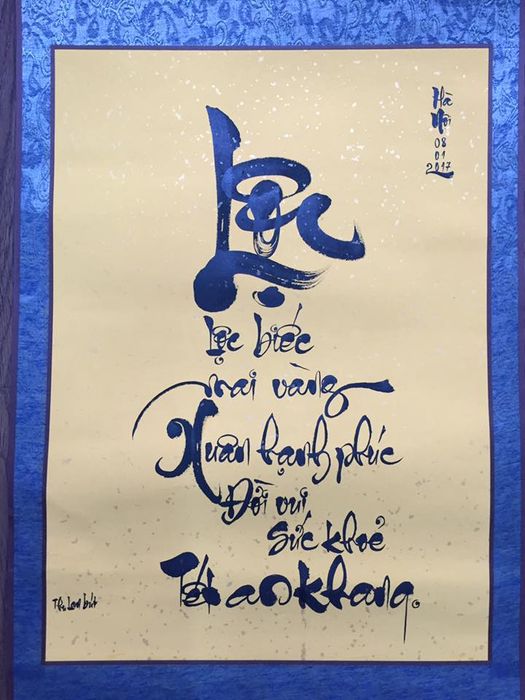 Hà
Nội
08
01
2017
Lộc
lộc biếc
mai vàng
Xuân hạnh phúc
Đời vui
sức khoẻ
Tết an khang.